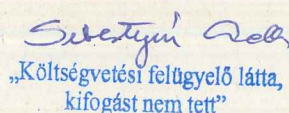 Sebestyén
„Költségvetési felügyelő látta,
kifogást nem tett”